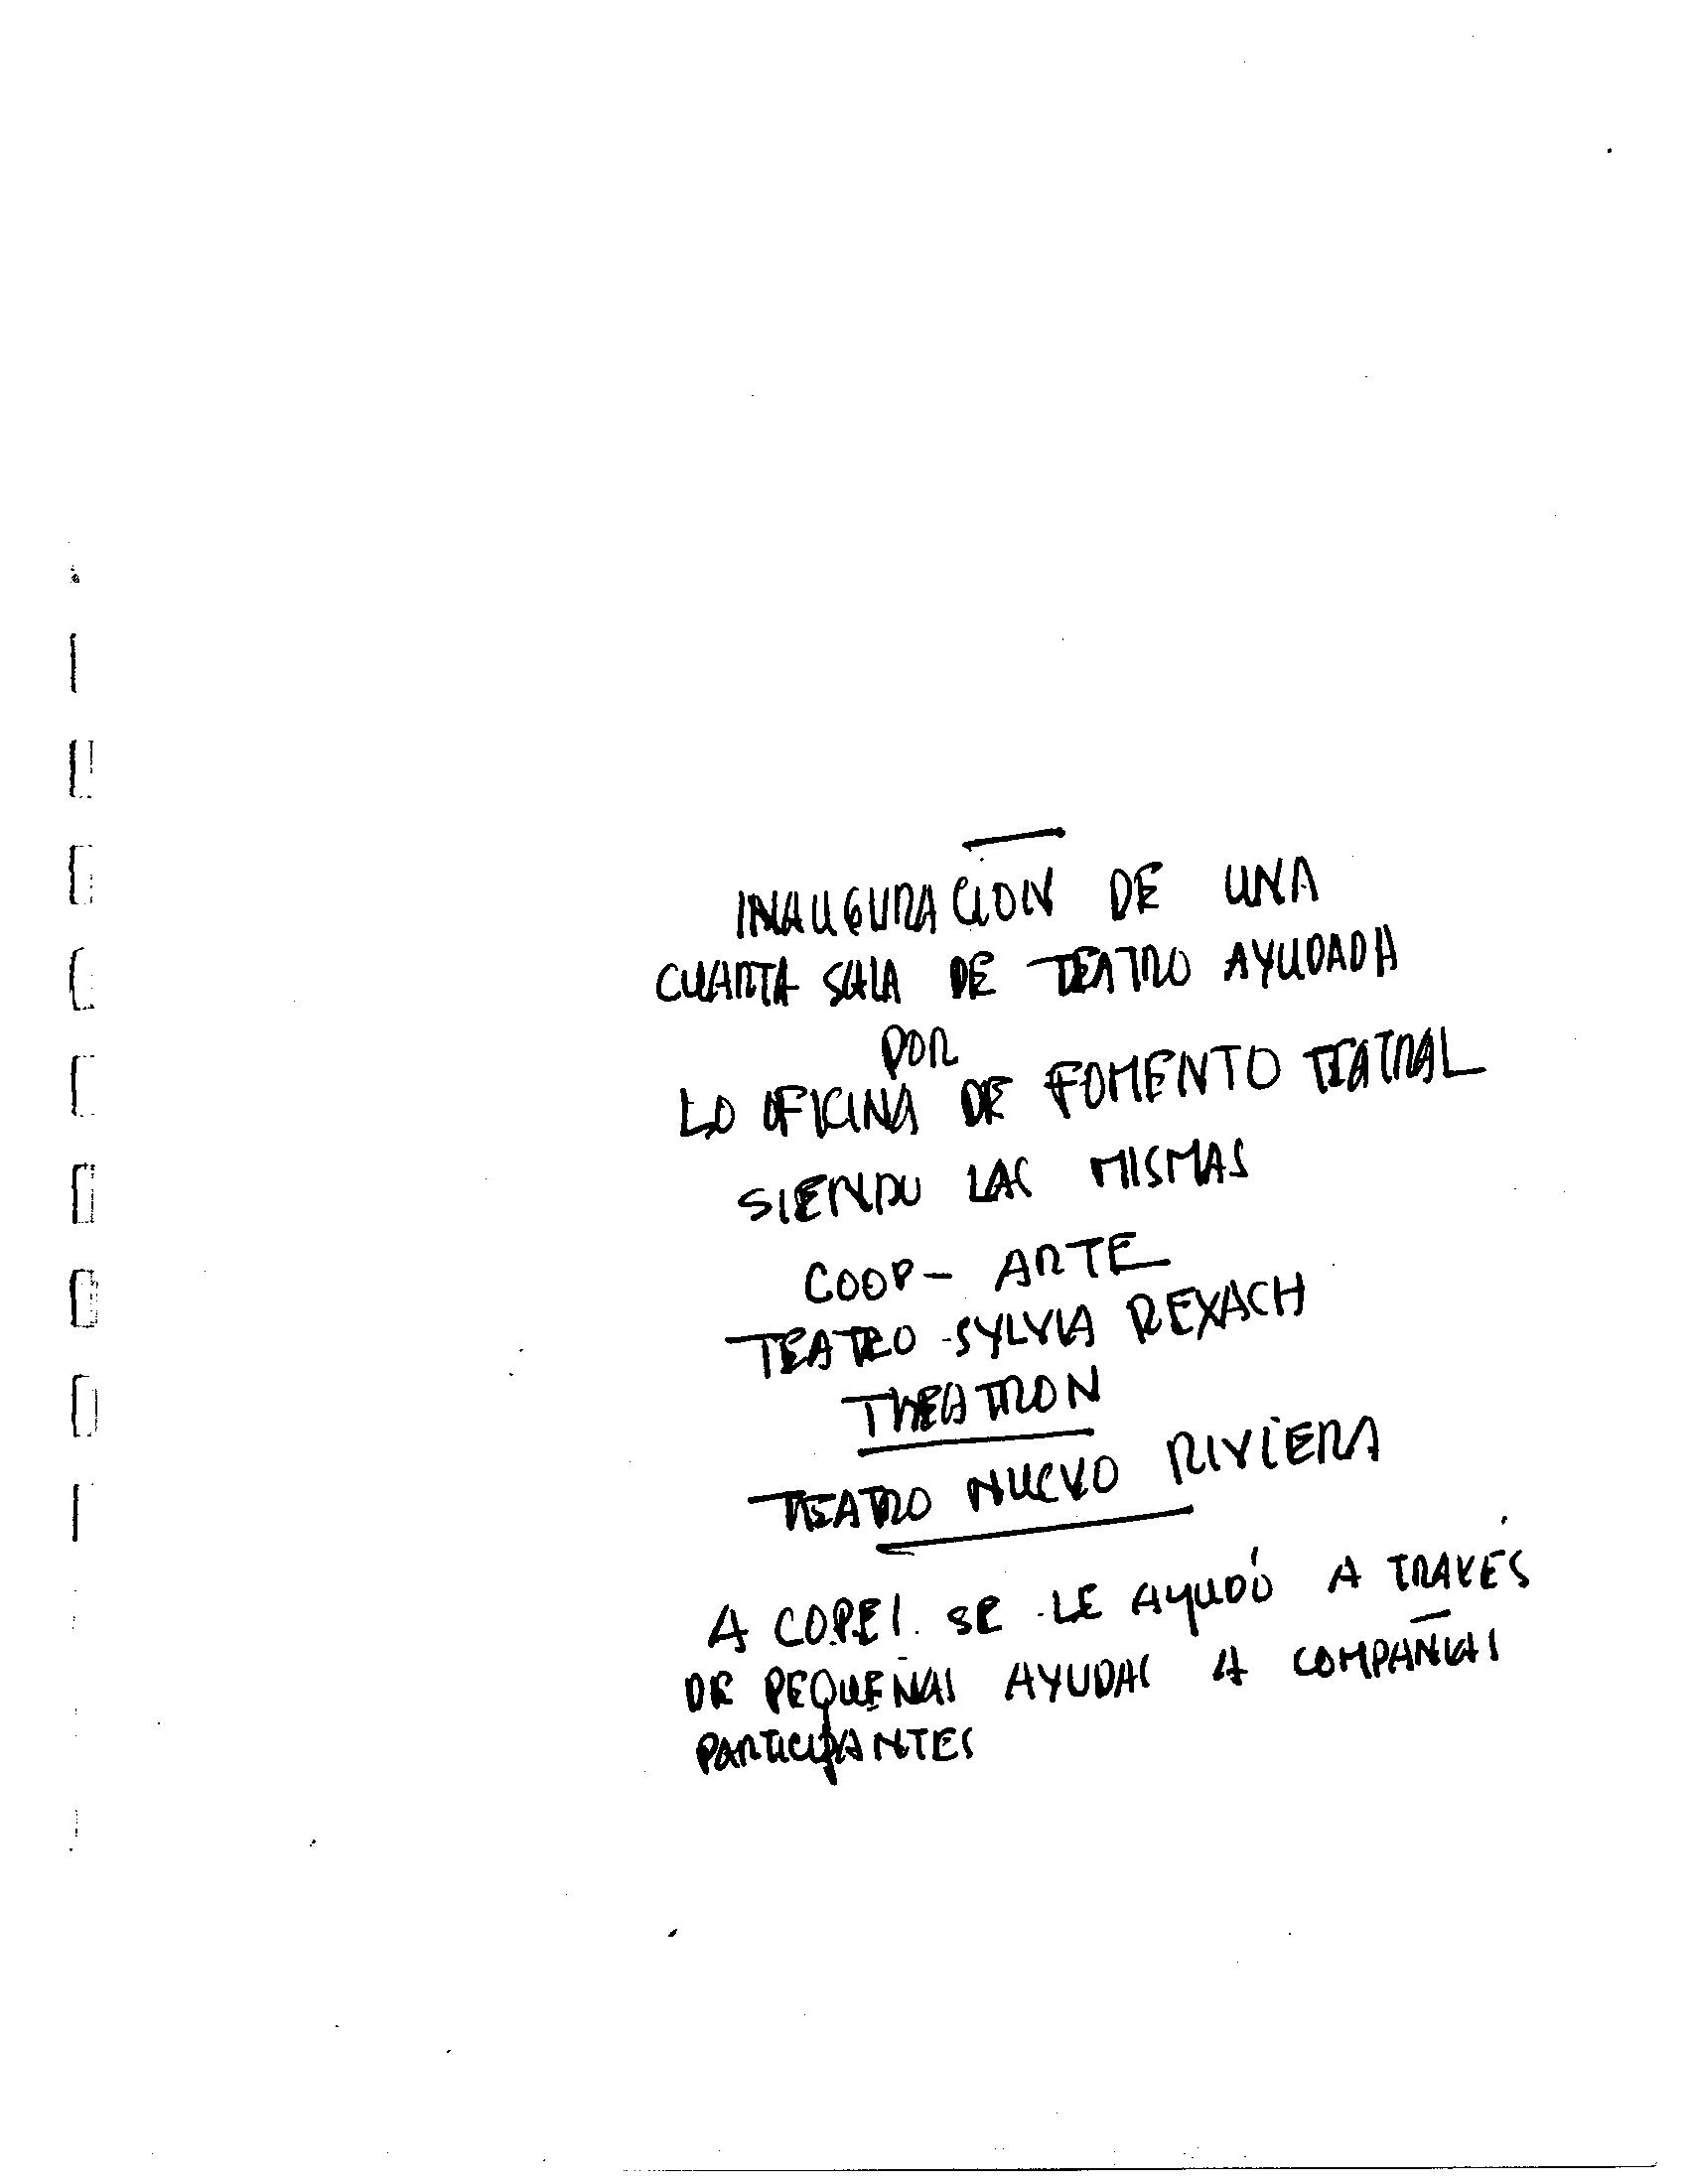 INAUGURACION DE UNA
CUARTA SALA DE TEATRO AYUDADA
POR
LA OFICINA DE FOMENTO TEATRAL
SIENDO LAS MISMAS
COOP- ARTE
TEATRO SYLVIA REXACH
THEATRON
TEATRO NUEVO RIVIERA
A COPEI. SE LE AYUDÓ A TRAVÉS
DE PEQUEÑAS AYUDAS A COMPAÑIAS
PARTICIPANTES